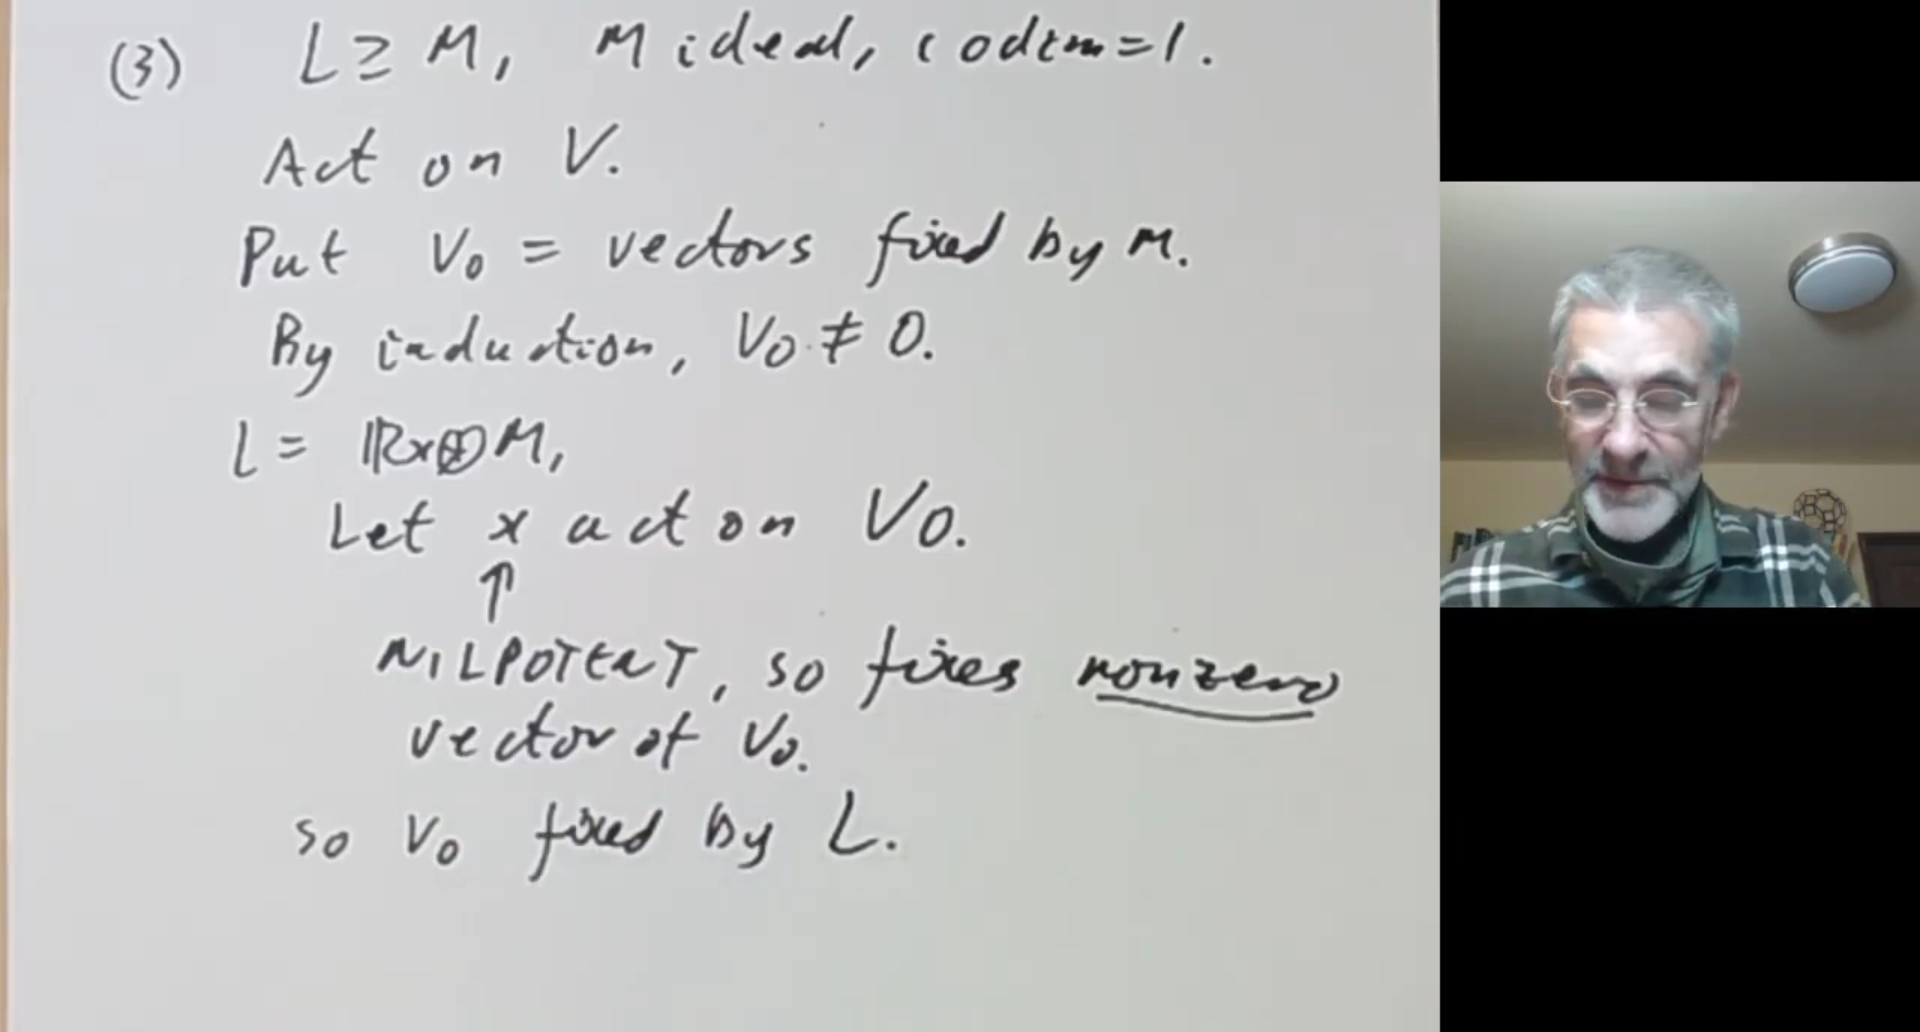 (3) L ⊇ M, M ideal, codim = 1.
Act on V.
Put V₀ = vectors fixed by M.
By induction, V₀ ≠ 0.
L = ℝx ⊕ M,
Let x act on V₀.
↑
NILPOTENT, so fixes nonzero
vector of V₀.
so V₀ fixed by L.